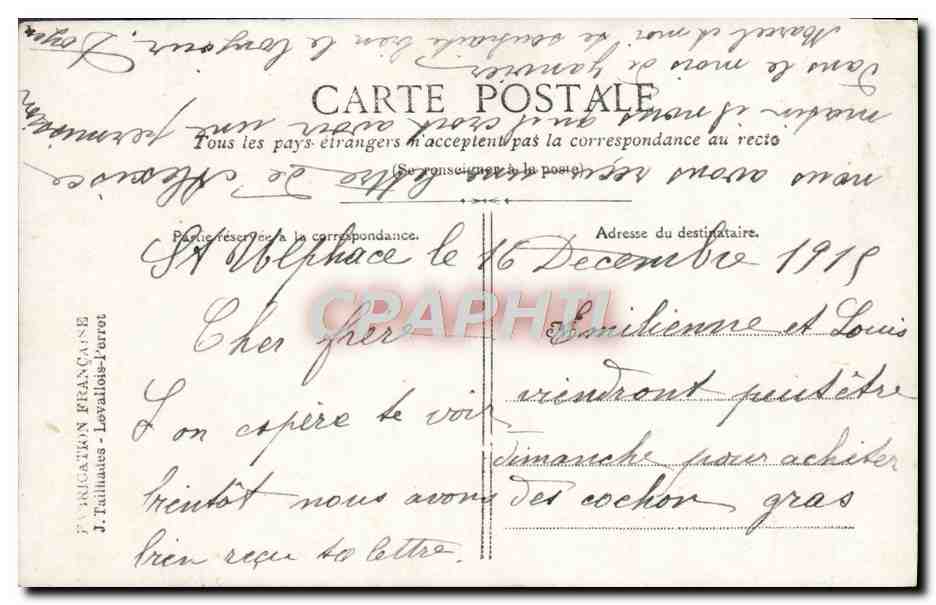 CARTE POSTALE
Tous les pays étrangers n'acceptent pas la correspondance au recto
(Se renseigner à la poste)
Partie réservée à la correspondance.
Adresse du destinataire.
St Ulphace le 16 Decembre 1915
Cher frere
L on espère te voir
bientôt nous avons
bien reçu ta lettre.
Emilienne et Louis
viendront peutêtre
dimanche pour acheter
des cochon gras
nous avons reçu une lettre de Alexisce
matin il nous quil croit avoir une permission
Dans le mois de Janvier
Marcel et moi te souhaite bien le bonjour. Doyen
FABRICATION FRANÇAISE
J. Tailhades - Levallois-Perrot
CPRAPHTI